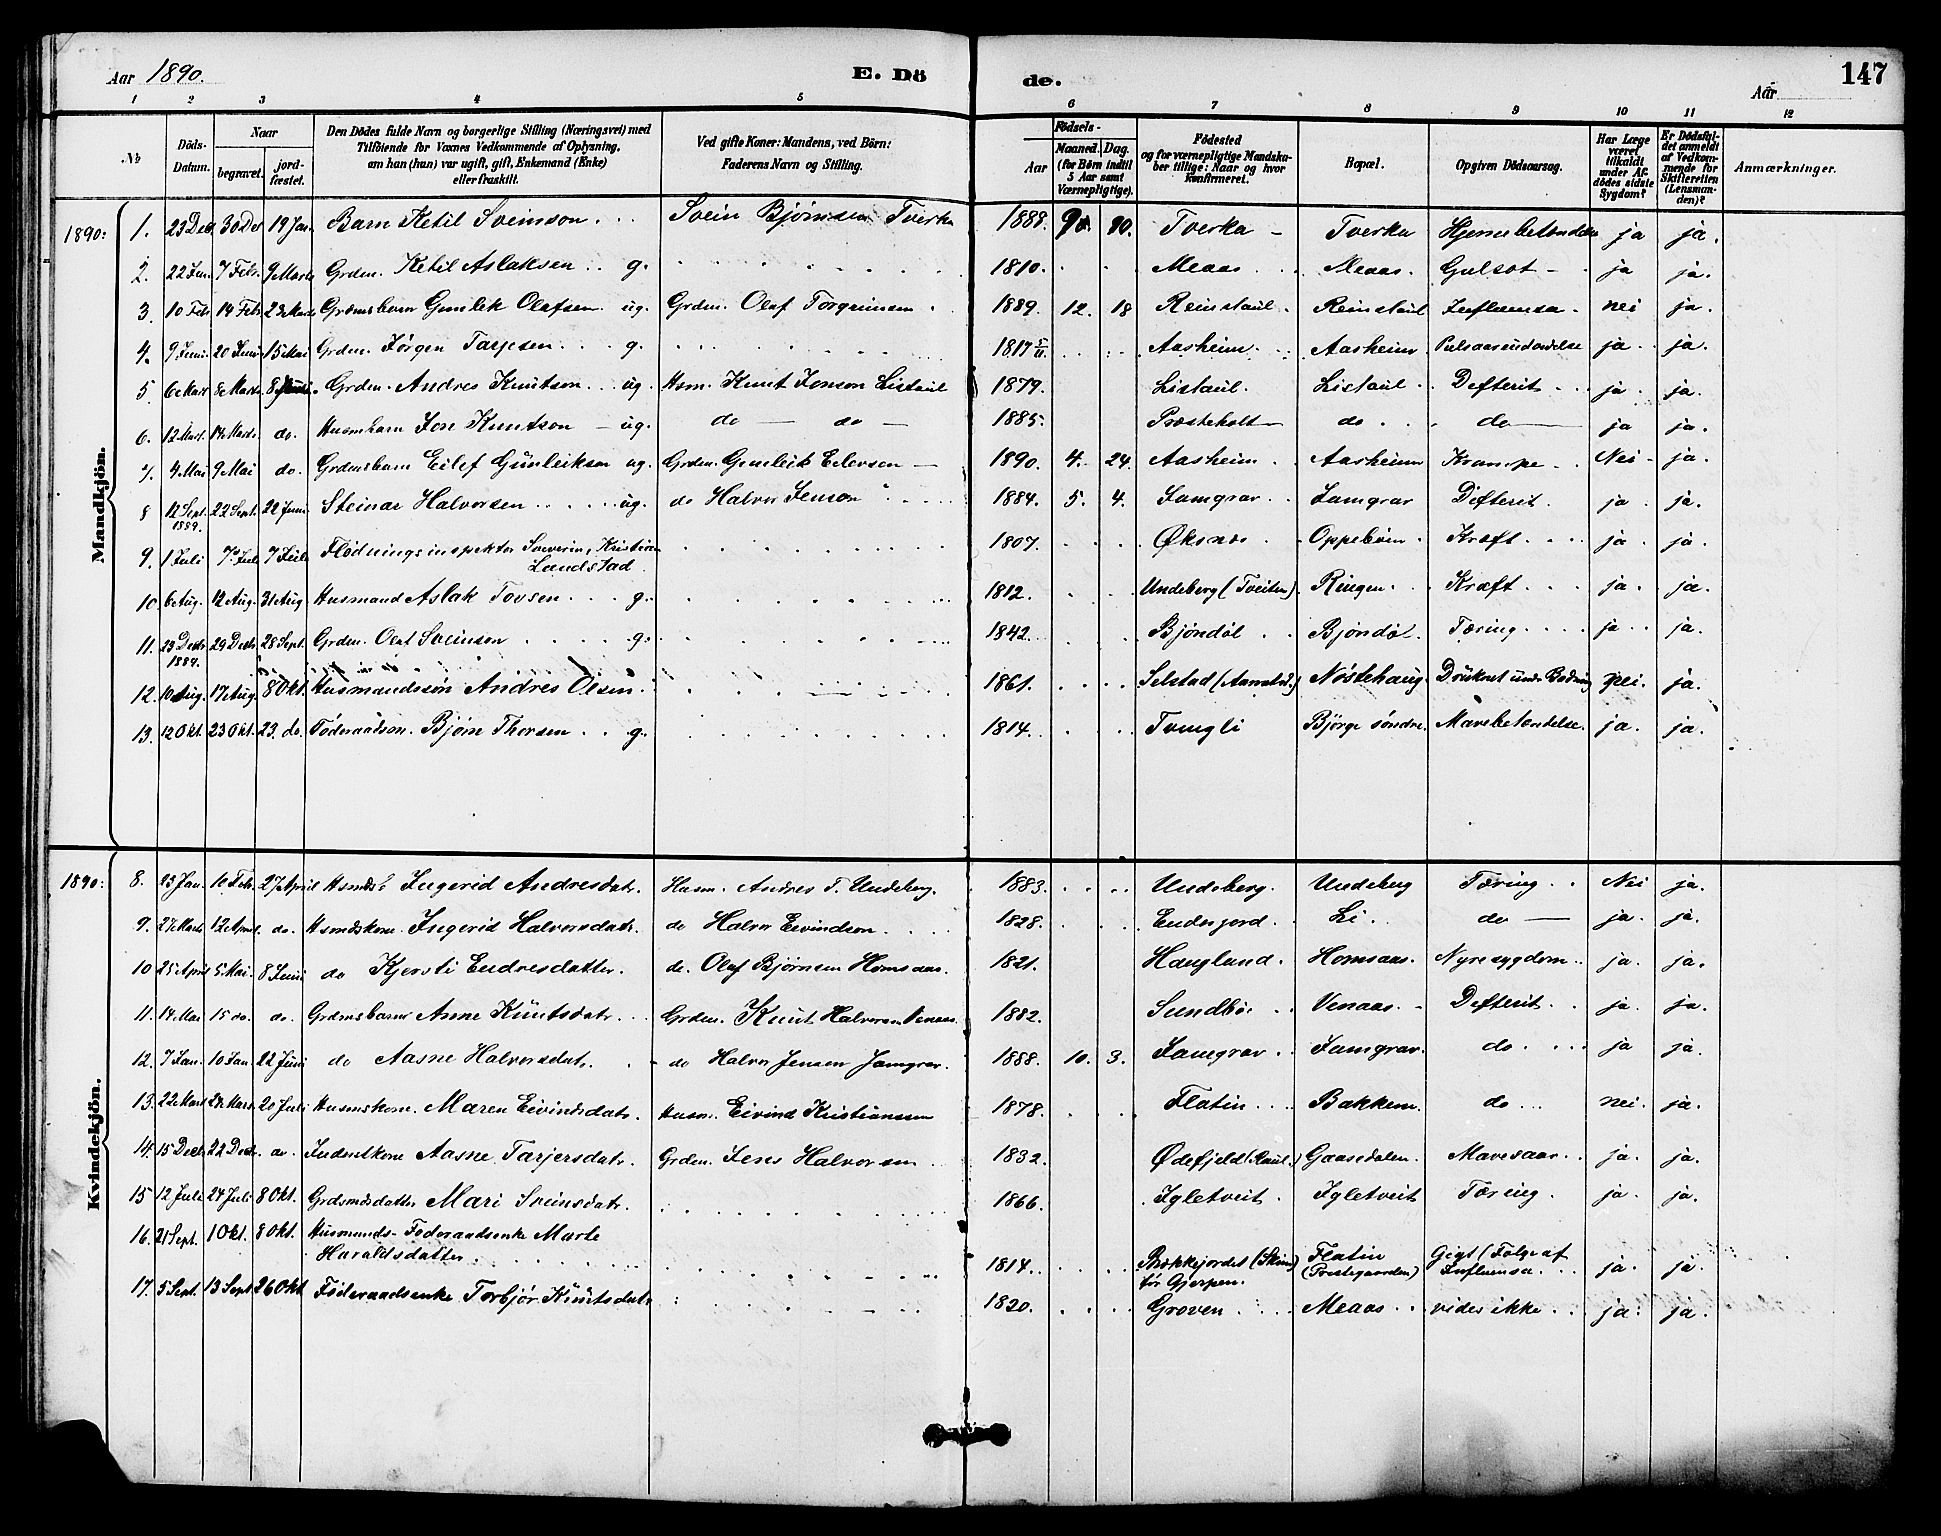 Aar 1890. E. Dö de. Aar 147
1 2 3 4 5 6 7 8 9 10 11 12
No Döds-Datum. Naar begravet. jordfæstet. Den Dödes fulde Navn og borgerlige Stilling (Næringsvei) med Tilföiende for Voxnes Vedkommende af Oplysning, om han (hun) var ugift, gift, Enkemand (Enke) eller fraskilt. Ved gifte Koner: Mandens, ved Börn: Faderens Navn og Stilling. Födsels- Aar Maaned. Dag. (for Börn indtil 5 Aar samt Værnepligtige). Födested og for værnepligtige Mandskaber tillige: Naar og hvor konfirmeret. Bopæl. Opgiven Dödsaarsag. Har Læge været tilkaldt under Afdödes sidste Sygdom? Er Dödsfaldet anmeldt af Vedkommende for Skifteretten (Lensmanden)? Anmærkninger.
Mandkjön.
1890: 1. 23 Dec 30 Dec 19 Jan. Barn Ketil Sveinson Svein Bjørnsen Tverka 1888. Tverka Tverka Hjernebetændelse ja ja.
2. 22 Jan. 7 Febr. 9 Marts Grdm. Ketil Aslaksen g. 1810. Meaas Meaas. Gulsot ja ja.
3. 10 Febr 14 Febr 23 Marts Grdmsbarn Gunlik Olafsen ug. Grdm. Olaf Torgrimsen 1889. 12. 18 Reinstaul Reinstaul Influensa nei ja.
4. 9 Juni 20 Juni 15 Mai Grdm. Jørgen Tarjesen g. 1817 Aasheim Aasheim Pulsaareudvidelse ja ja.
5. 6 Mart 8 Marts 8 Juni Grdm. Andres Knutson ug. Hsm. Knut Jonson Listaul 1879. Listaul. Listaul Defterit ja ja.
6. 12 Mart. 14 Marts do. Husmbarn Jon Knutson ug. do do 1885. Præsteholt do do ja ja.
7. 4 Mai 9 Mai do Grdmsbarn Eilef Gunleiksen ug. Grdm. Gunleik Eilevsen 1890. 4. 24. Aasheim Aasheim Krampe Nei ja.
8 12 Sept. 1889. 22 Sept. 22 Juni Steinar Halvorsen ug. do Halvor Jenson 1884. 5. 4. Jamgrav Jamgrav Difterit. ja ja.
9. 1 Juli 7 Juli 7 Juli Flødningsinspektør Severin Kristian Landstad 1807. Øksnes Oppebøen Kræft ja ja.
10. 6 Aug. 12 Aug. 31 Aug Husmand Aslak Tovsen g. 1812. Undeberg (Tveiten) Ringen Kræft ja ja.
11. 23 Dectr 1889. 29 Dectr 28 Sept. Grdm. Olaf Sveinson g. 1842. Bjöndöl Bjöndöl. Tæring ja ja.
12. 10 Aug. 17 Aug. 8 Okt. Husmandssøn Andres Olsen 1861. Selstad Nöstehaug. Druknet under Badning nei. ja.
13. 12 Okt. 23 Okt. 23. do. Föderaadsm. Bjørn Thorsen g. 1814. Tvingli Björge søndre Mavebetændelse ja. ja.
Kvindekjön.
1890: 8. 23 Jan. 1 Febr. 27 April Ingerid Andresdatr. Husm. Andres T. Undeberg. 1883. Undeberg. Undeberg Tæring Nei ja.
9. 27 Marts 12 April. do. Hsmdskone. Ingerid Halvorsdatr. do Halvor Eivindson 1828. Endesjord Li. do ja. ja.
10 25 April 5 Mai 8 Juni do Kjersti Endresdatter. do. Olaf Bjørnsen Homsaas. 1821. Haugland. Homsaas. Nyresygdom ja. ja.
11. 14 Mai 15 do. do Grdmsbarn Anne Knutsdatr. Grdm. Knut Halvorsen Venaas. 1882. Sundbö Venaas Defterit ja ja.
12. 7 Jan. 10 Jan 22 Juni do Aasne Halvorsdatr. do Halvor Jensen Jamgrav. 1888. 10. 3. Jamgrav Jamgrav. do. ja ja.
13. 22 Mart 28 Mars. 20 Juli Husmskone. Maren Eivindsdatr. Husm. Eivind Kristiansen 1878. Flatin Bakken. do nei. ja.
14. 15 Dectr. 22 Dectr. do. Aasne Tarjersdatr. Grdm. Jens Halvorsen 1832. Ødefjeld (Raul.) Gaasedalen. Mavesaar ja. ja.
15 12 Juli 24 Juli 8 Okt. Grdsmdsdatter Mari Sveinsdatr. 1866. Igletveit. Igletveit Tæring. ja. ja.
16. 21 Sept. 1 Okt. 8 Okt. Husmands-Föderaadsenke Marte Haraldsdatter 1814. Bækkejordet (Skien) før Gjerpen. Flatin (Prestegaarden) Gigt (Følge af Influensa ja. ja.
17. 5 Sept. 13 Sept 26 Okt Föderaadsenke Torbjør Knutsdatr 1820. Groven Meaas vides ikke ja. ja.